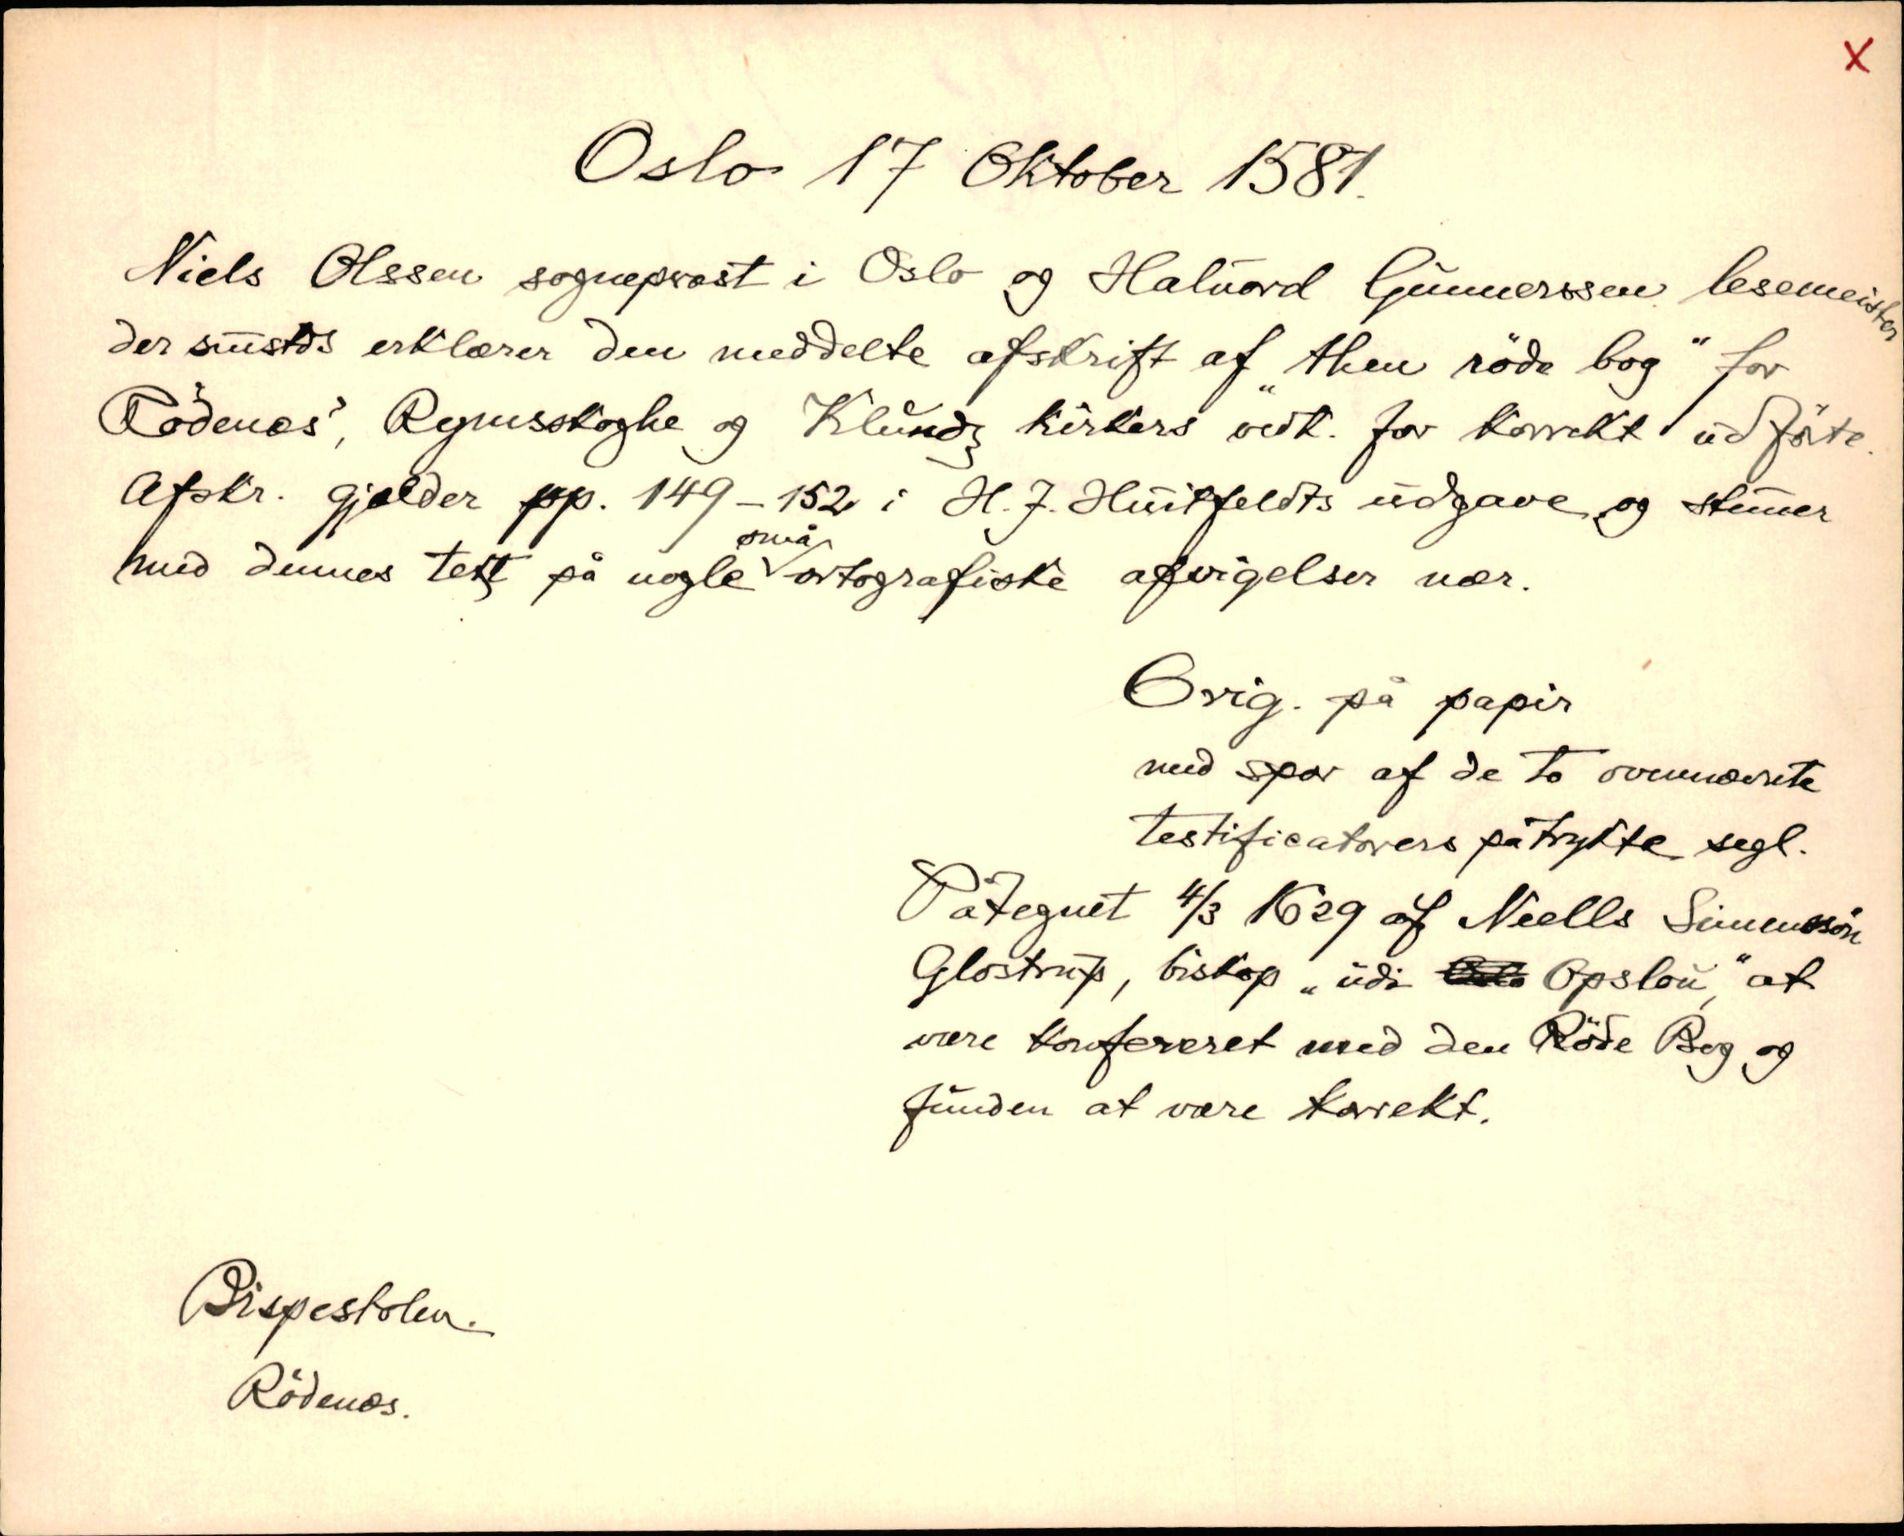 X
Oslo 17 Oktober 1581.
Niels Olssen sogneprest i Oslo og Haluord Gunnerssen lesemeister
der smstds erklærer den meddelte afskrift af „then röde bog" for
Rödenes', Rymsskoghe og Klundz kirkers vedk. for korrekt udförte.
Afskr. gjælder pp. 149-152 i H. J. Huitfeldts udgave og stemmer
med dennes text på nogle små ortografiske afvigelser nær.
Orig. på papir
med spor af de to ovennævnte
testificatorers påtrykte segl.
Påtegnet 4/3 1629 af Niells Simensön
Glostrup, biskop „udi Opslou," at
være konfereret med den Röde Bog og
funden at være korrekt.
Bispestolen.
Rödenes.